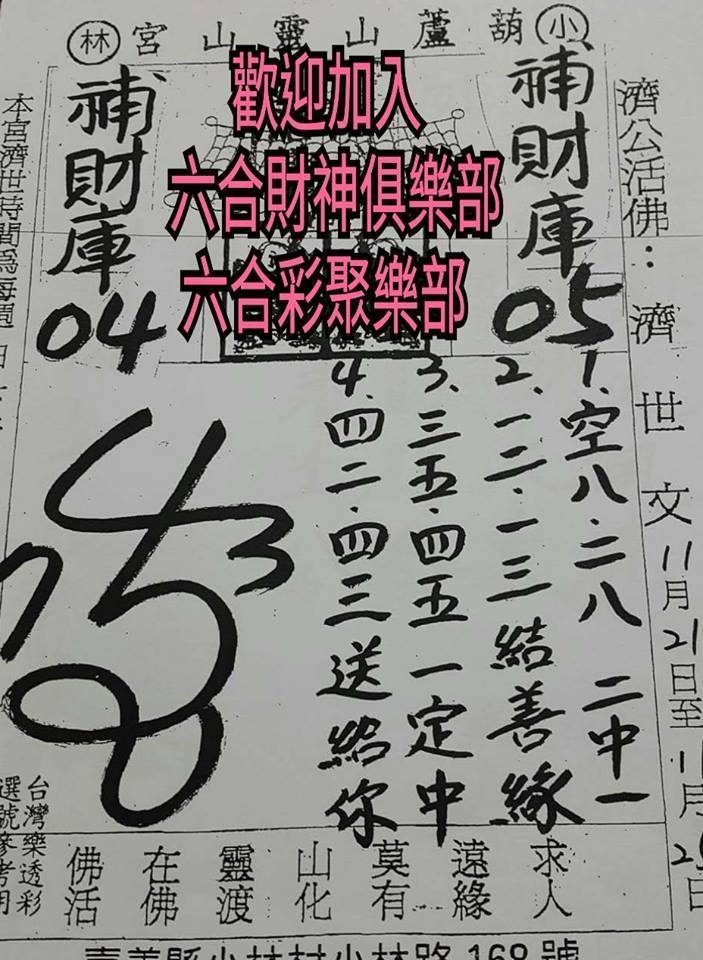 小葫蘆山靈山宮林
歡迎加入
六合財神俱樂部
六合彩聚樂部
濟公活佛：濟世文11月21日至11月25日
補財庫
05
補財庫
04
1、空八．二八 二中一
2、一二．一三結善緣
3、三五．四五一定中
4、四二．四三送給你
3
本宮濟世時間為每週
台灣樂透彩
選號參考用
求人
遠緣
莫有
山化
靈渡
在佛
佛活
嘉義縣小林村小林路168號